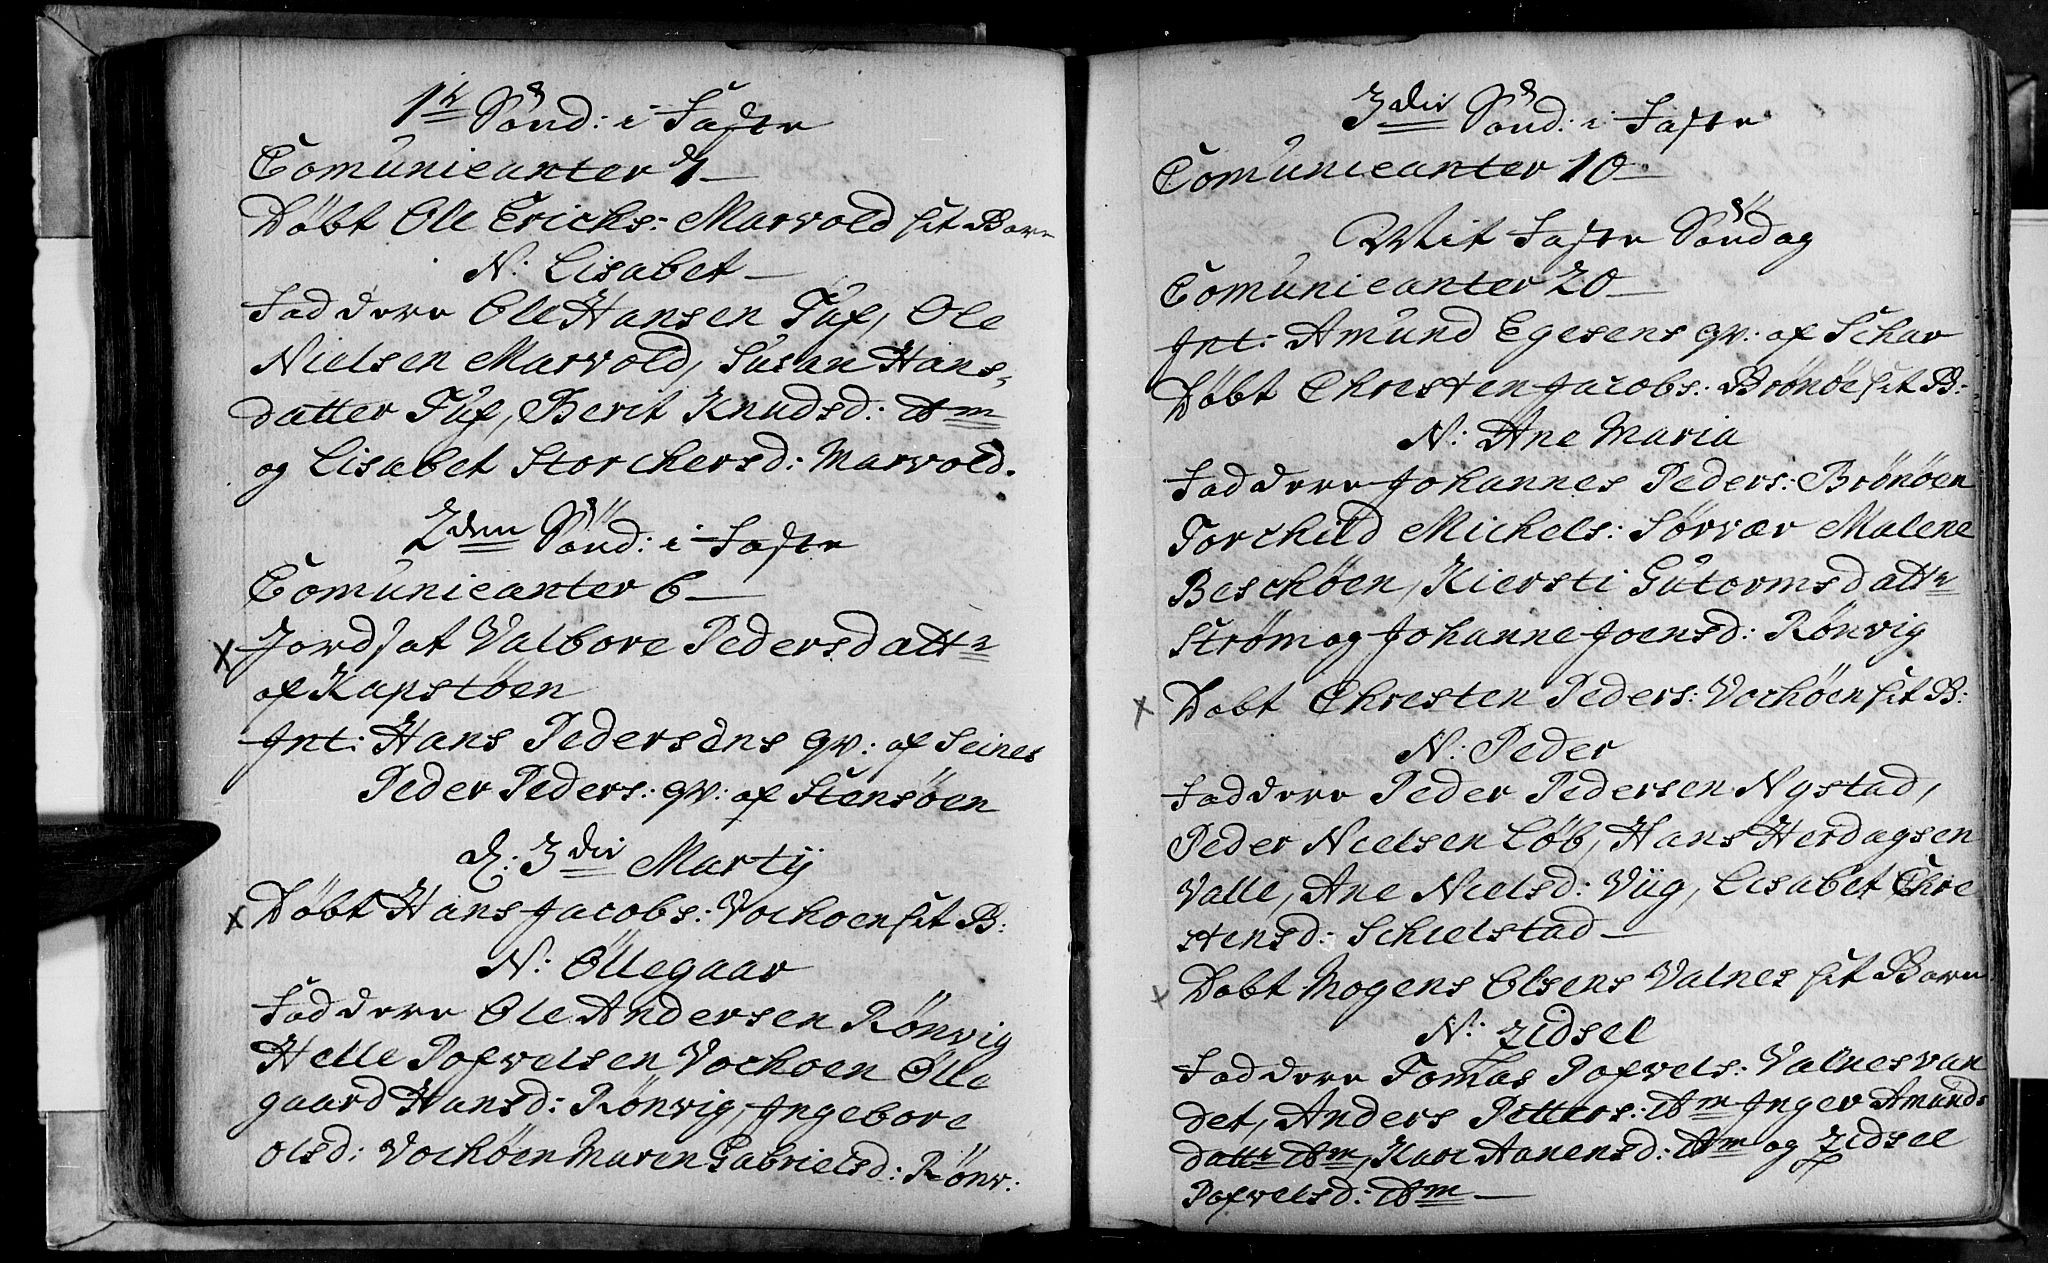 1te Sönd: i Faste
Comunicanter 4
Döbt Ole Erichs: Marvold sit Barn
N: Lisabet
Faddere Ole Hansen Tuf, Ole
Nielsen Marvold, Susan Hans-
datter Tuf, Berit Knudsd: ibm
og Lisabet Storchersd: Marvold.
2den Sönd: i Faste
Comunicanter 6
x Jordsat Valbore Pedersdattr
af Kapstöen
Int: Hans Pedersens qv: af Seines
Peder Peders: qv: af Stensöen
d: 3die Martij
x Döbt Hans Jacobs: Vochoen sit B:
N: Öllegaar
Faddere Ole Andersen Rönvig
Helle Pofvelsen Vochoen Ölle
gaard Hansd: Rönvig, Ingebore
olsd: Vochöen Maren Gabrielsd: Rönv:
3die Sönd: i Faste
Comunicanter 10
Mit Faste Söndag
Comunicanter 20
Int: Amund Egesens qv: af Schav
Döbt Christen Jacobs: Brönöe sit B:
N: Ane Maria
Faddere Johannes Peders: Brönöen
Torchild Michels: Sörvær Malene
Beschöen, Kiersti Gutormsdattr
Ström og Johanne Joensd: Rönvig
x Döbt Christen Peders: Vochöen sit B:
N: Peder
Faddere Peder Pedersen Nystad,
Peder Nielsen Löb, Hans Herdagsen
Valle, Ane Nielsd: Viig, Lisabet Chre
stensd: Schielstad
x Döbt Mogens Olsens Valnes sit Barn
N: Zidsel
Faddere Tomas Pofvels: Valnesvan
det, Anders Petters: ibm Inger Amunds
datter ibm, Kari Aanensd: ibm og Zidsel
Pofvelsd: ibm